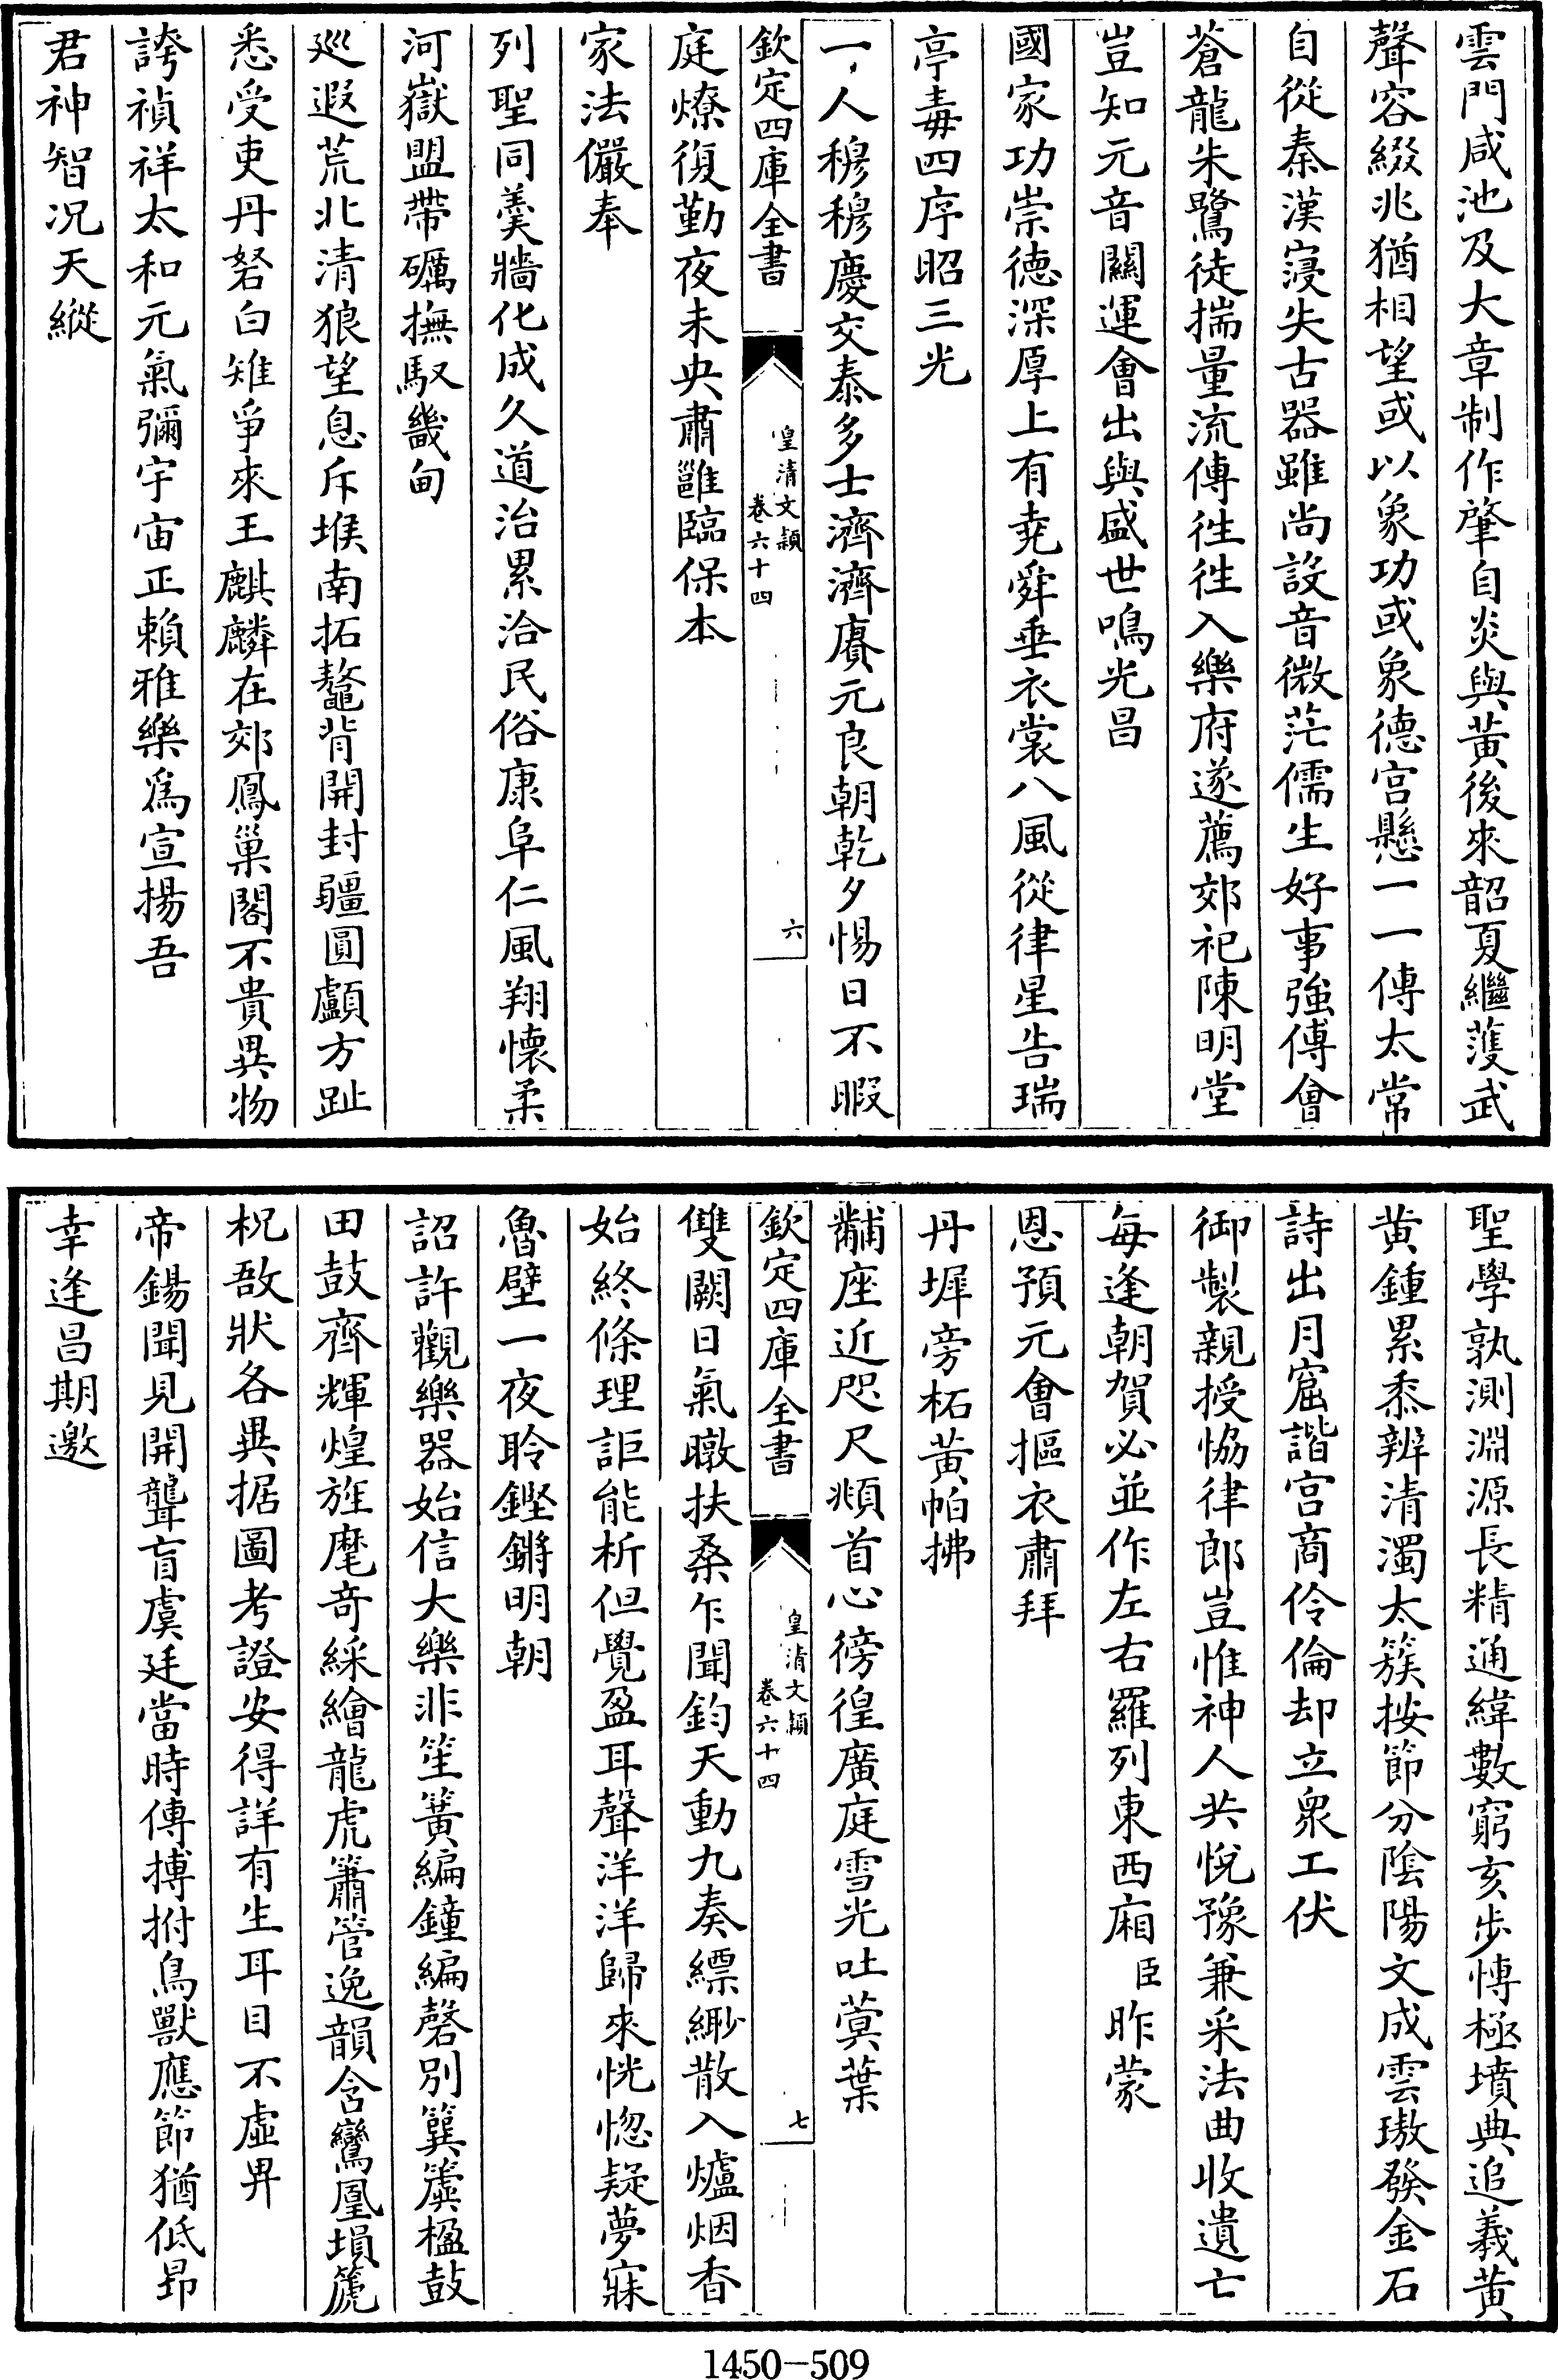 雲門咸池及大章制作肇自炎與黃後來韶夏繼濩武
聲容綴兆猶相望或以象功或象德宫懸一一傳太常
自從秦漢寖失古器雖尚設音微茫儒生好事強傅會
蒼龍朱鷺徒揣量流傳徃徃入樂府遂薦郊祀陳明堂
豈知元音關運會出與盛世鳴光昌
國家功崇德深厚上有堯舜垂衣裳八風從律星告瑞
亭毒四序昭三光
一人穆穆慶交泰多士濟濟賡元良朝乾夕惕日不暇
欽定四庫全書
皇清文穎
卷六十四
六
庭燎復勤夜未央肅雝臨保本
家法儼奉
列聖同羹牆化成久道治累洽民俗康阜仁風翔懷柔
河嶽盟帶礪撫馭畿甸
廵遐荒北清狼望息斥堠南拓鼇背開封疆圓顱方趾
悉受吏丹砮白雉爭來王麒麟在郊鳳巢閣不貴異物
誇禎祥太和元氣彌宇宙正賴雅樂爲宣揚吾
君神智况天縱
聖學孰測淵源長精通緯數窮亥步愽極墳典追羲黄
黄鍾累黍辨清濁太簇按節分隂陽文成雲璈發金石
詩出月窟諧宫商伶倫却立衆工伏
御製親授恊律郎豈惟神人共悅豫兼采法曲收遺亡
每逢朝賀必並作左右羅列東西廂臣昨蒙
恩預元會摳衣肅拜
丹墀旁柘黄帕拂
黼座近咫尺頫首心徬徨廣庭雪光吐蓂葉
欽定四庫全書
皇清文穎
卷六十四
七
雙闕日氣暾扶桑乍聞鈞天動九奏縹緲散入爐烟香
始終條理詎能析但覺盈耳聲洋洋歸來恍惚疑夢寐
魯壁一夜聆鏗鏘明朝
詔許觀樂器始信大樂非笙簧編鐘編磬別簨簴楹鼓
田鼓齊輝煌旌麾竒綵繪龍虎簫管逸韻含鸞凰塤篪
柷敔狀各異据圖考證安得詳有生耳目不虛畀
帝錫聞見開聾盲虞廷當時傳搏拊鳥獸應節猶低昻
幸逢昌期邀
1450-509